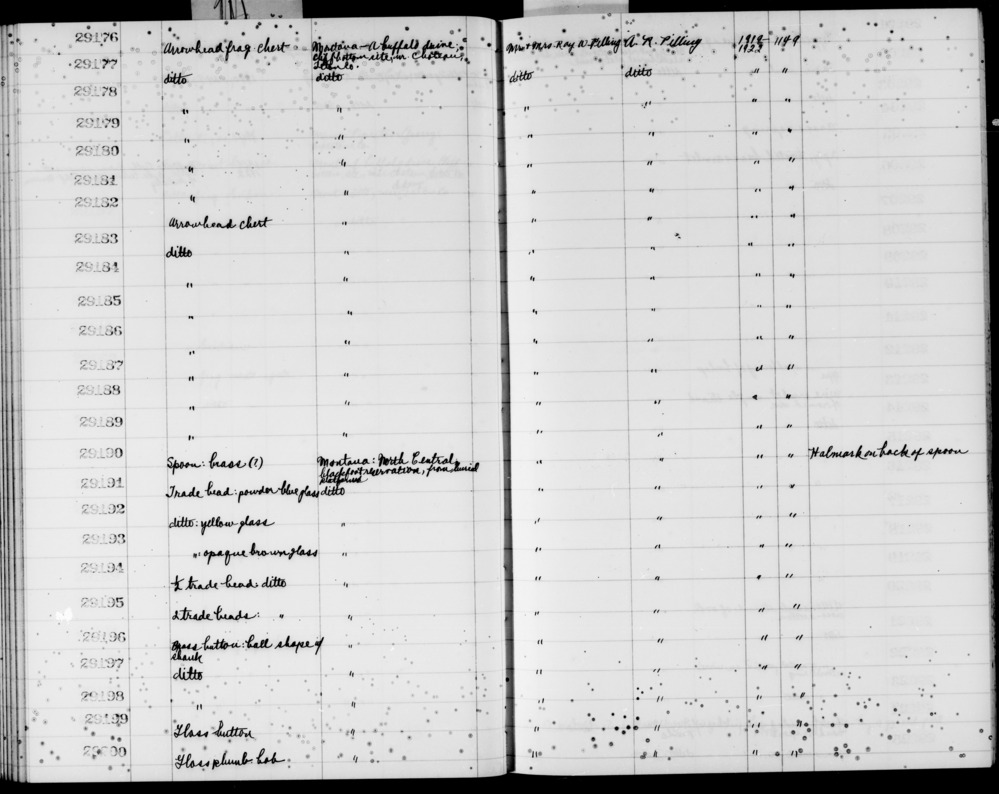 29176 Arrowhead frag. chert Montana—A buffalo drive, Mr. & Mrs. Ray W. Pilling A. R. Pilling 1919 1149
in Choteau, 1929
29177 ditto ditto ditto ditto " "
29178 " " " " " "
29179 " " " " " "
29180 " " " " " "
29181 " " " " " "
29182 Arrowhead chert " " " " "
29183 ditto " " " " "
29184 " " " " " "
29185 " " " " " "
29186 " " " " " "
29187 " " " " " "
29188 " " " " " "
29189 " " " " " "
29190 Spoon: brass (?) Montana: North Central " " " " Halmark on back of spoon
Blackfoot reservation, from burial
platform
29191 Trade bead: powder blue glass ditto " " " "
29192 ditto: yellow glass " " " " "
29193 ": opaque brown glass " " " " "
29194 ½ trade bead: ditto " " " " "
29195 2 trade beads: " " " " " "
29196 Brass button: ball shape of " " " " "
shank
29197 ditto " " " " "
29198 " " " " " "
29199 Glass button " " " " "
29200 Glass plumb bob " " " " "